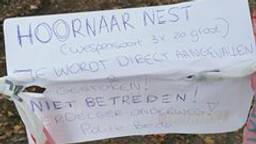 HOORNAAR NEST
(wespensoort 3x zo groot)
JE WORDT DIRECT AANGEVALLEN
& GESTOKEN!
NIET BETREDEN!
VERDELGER ONDERWEG!
Politie